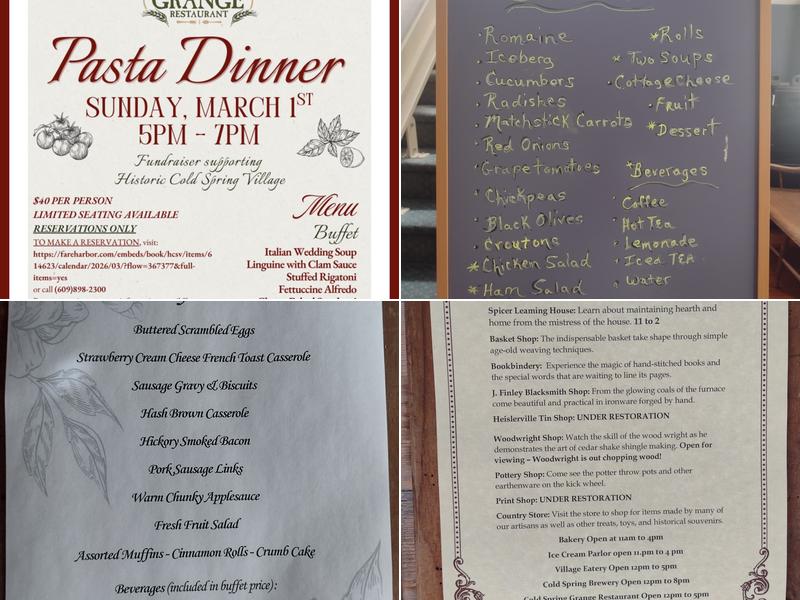 GRANGE
RESTAURANT
Pasta Dinner
SUNDAY, MARCH 1ST
5PM - 7PM
Fundraiser supporting
Historic Cold Spring Village
$40 PER PERSON
LIMITED SEATING AVAILABLE
RESERVATIONS ONLY
TO MAKE A RESERVATION, visit:
https://fareharbor.com/embeds/book/hcsv/items/6
14623/calendar/2026/03/?flow=367377&full-
items=yes
or call (609)898-2300
Menu
Buffet
Italian Wedding Soup
Linguine with Clam Sauce
Stuffed Rigatoni
Fettuccine Alfredo
· Romaine
· Iceberg
· Cucumbers
· Radishes
· Matchstick Carrots
· Red Onions
· Grape tomatoes
· Chickpeas
· Black Olives
· Croutons
* Chicken Salad
* Ham Salad
* Rolls
* Two Soups
· Cottage Cheese
· Fruit
* Dessert
* Beverages
· Coffee
· Hot Tea
· Lemonade
· Iced TEA
· Water
Buttered Scrambled Eggs
Strawberry Cream Cheese French Toast Casserole
Sausage Gravy & Biscuits
Hash Brown Casserole
Hickory Smoked Bacon
Pork Sausage Links
Warm Chunky Applesauce
Fresh Fruit Salad
Assorted Muffins - Cinnamon Rolls - Crumb Cake
Beverages (included in buffet price):
Spicer Leaming House: Learn about maintaining hearth and
home from the mistress of the house. 11 to 2
Basket Shop: The indispensable basket take shape through simple
age-old weaving techniques.
Bookbindery: Experience the magic of hand-stitched books and
the special words that are waiting to line its pages.
J. Finley Blacksmith Shop: From the glowing coals of the furnace
come beautiful and practical in ironware forged by hand.
Heislerville Tin Shop: UNDER RESTORATION
Woodwright Shop: Watch the skill of the wood wright as he
demonstrates the art of cedar shake shingle making. Open for
viewing – Woodwright is out chopping wood!
Pottery Shop: Come see the potter throw pots and other
earthenware on the kick wheel.
Print Shop: UNDER RESTORATION
Country Store: Visit the store to shop for items made by many of
our artisans as well as other treats, toys, and historical souvenirs.
Bakery Open at 11am to 4pm
Ice Cream Parlor open 11.pm to 4 pm
Village Eatery Open 12pm to 5pm
Cold Spring Brewery Open 12pm to 8pm
Cold Spring Grange Restaurant Open 12pm to 5pm